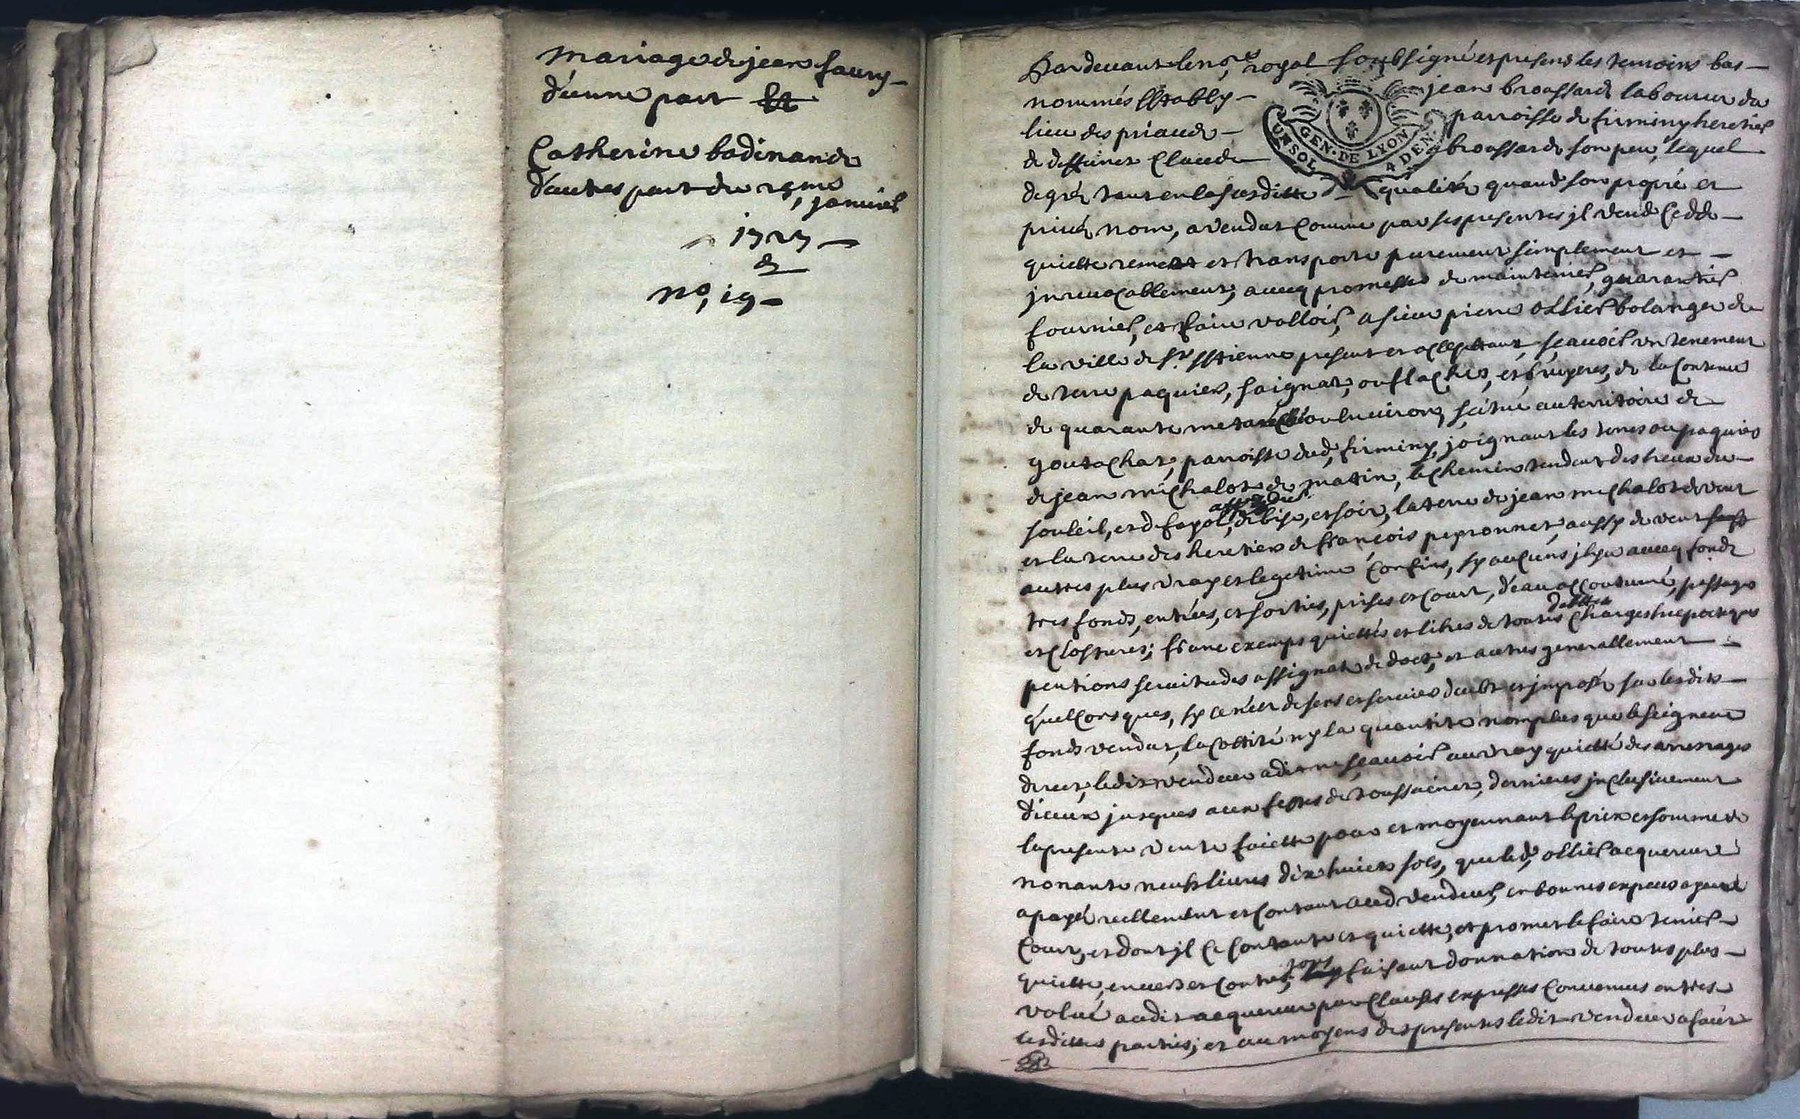 mariage de jean faury
d'eunne part Et
Catherine badinand
d'autres part du 29me
janvier
1727
&
no, 19
Pardevant le no.re royal soubsigné et presens les temoins bas
nommés Estably jean broassard laboureur du
lieu des priaude parroisse de firminy heretier
de deffunct Claude broassard son pere, lequel
de gré tant en la susditte qualité quand son propre et
privé nom, a vendut comme par ses presentes il vend cedde
quictte remet et transporte purement simplement et
inrevocablement, avecq promesses de maintenir, guarantir
fournir, et faire valloir, a sieur pierre ollier bolanger de
la ville de St. Estienne present et acceptant, sçavoir un tenement
de terre paquier, saignat, ouflaches, et bruyeres, de la contenue
de quarante metanchées ou environs, scitué au territoire de
goutachat, parroisse dud, firminy, joignant les terres ou paquiers
de jean michalot de mattin, le chemin tendant des lieux du
souleil, et de fayol, de bise, et soir, la terre de jean michalot de vent
et la terre des heretiers de françois peyronnet, aussy de vent
autres plus vray et legetime confins, sy aucuns il y a avecq fonds
tres fonds, entrées, et sorties, prises et cour, d'eau accoutumé, passages
et clostures; franc exemps quicttes et libres de touttes debttes charges hiepotéques
pentions servitudes assignat de doct, et autres generallement
quelconsques, sy ce n'est de sens et servies deubt et imposés sur lesdits
fonds vendut, la cottité ny la quantité nomplus que le seigneur
direct, ledit vendeur a dit ne sçavoir au vray quictté des arrerages
d'iceux jusques aux festes de toussainct, dernieres inclusivement
la presente vente faictte pour et moyennant le prix et somme de
nonante neuf livres dix huict sols, que led, ollier acquereur
a payé reellement et contant aud vendeur, en bonnes expeces ayant
cour, et dont il ce contante et quictte, et promet le faire tenir
quictte, envers et contre tous faisant donnation de touttes plus
value audit acquereur par clauses expresses convenues entres
lesdittes parties; et au moyens des presentes ledit vendeur a faict
UN SOL GEN. DE LYON 4 DEN.